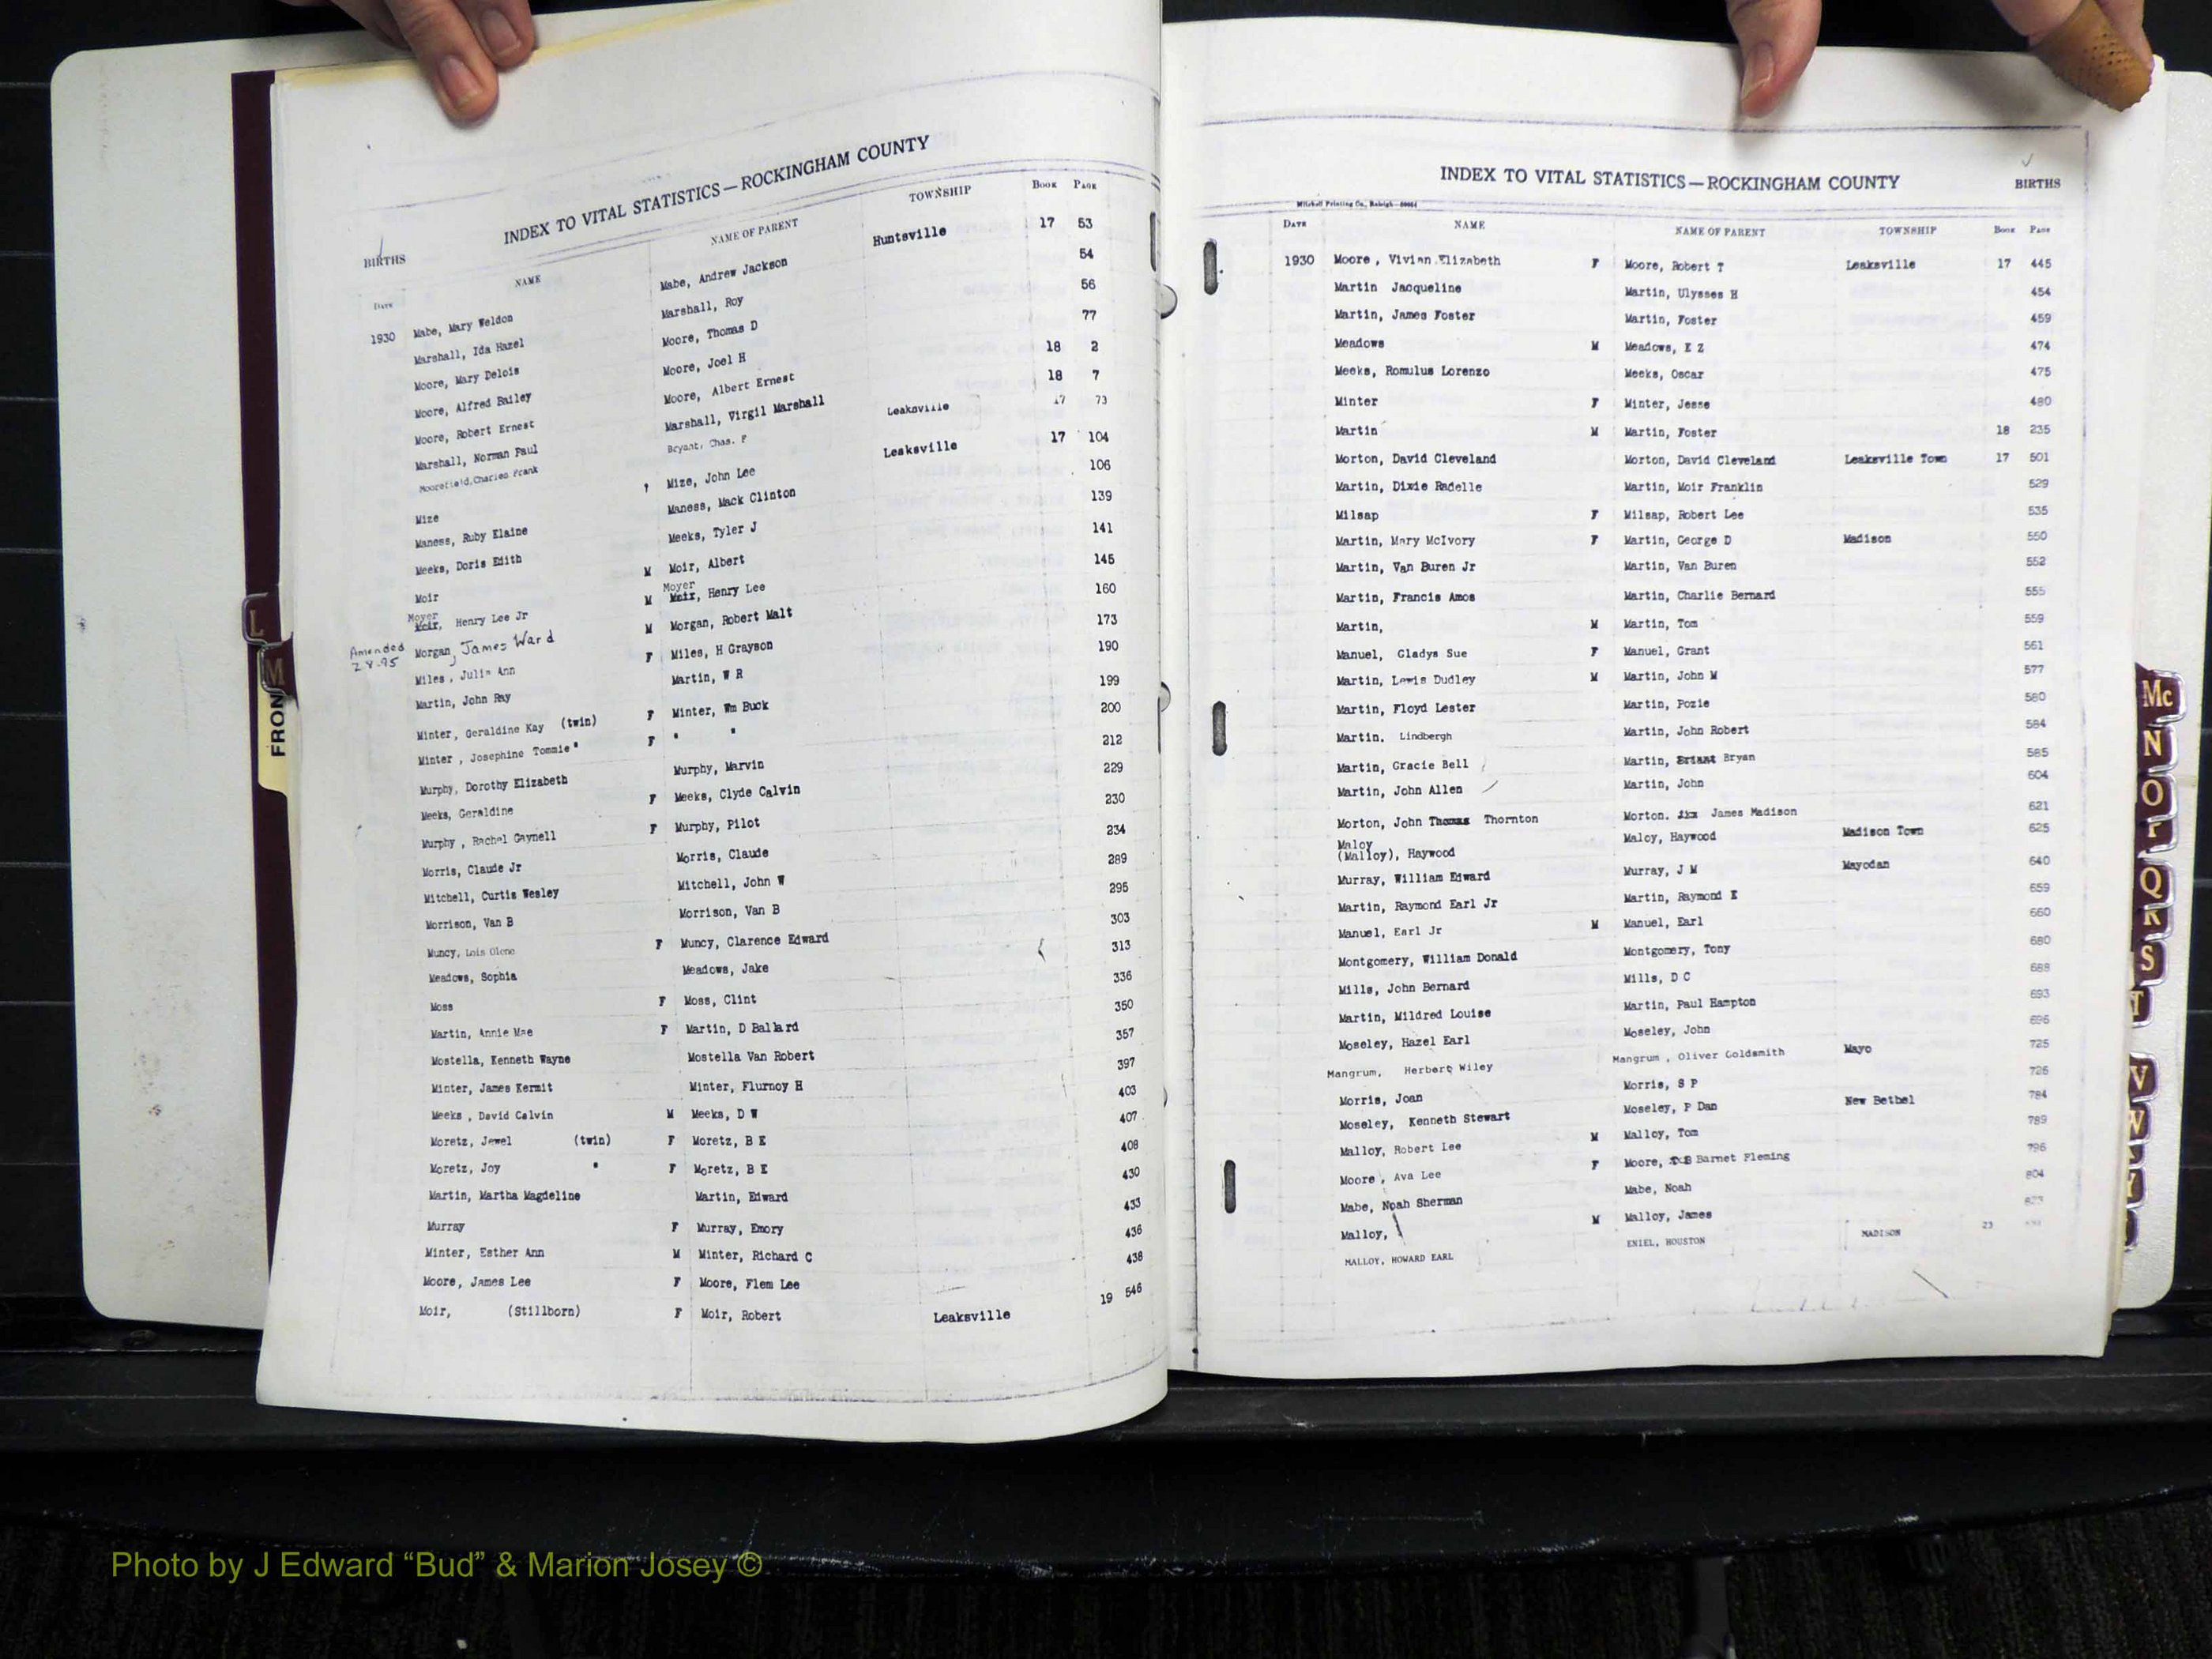 INDEX TO VITAL STATISTICS — ROCKINGHAM COUNTY
BIRTHS
DATE NAME NAME OF PARENT TOWNSHIP BOOK PAGE
1930 Mabe, Mary Weldon Mabe, Andrew Jackson Huntsville 17 53
Marshall, Ida Hazel Marshall, Roy 54
Moore, Mary Delois Moore, Thomas D 56
Moore, Alfred Bailey Moore, Joel H 77
Moore, Robert Ernest Moore, Albert Ernest 18 2
Marshall, Norman Paul Marshall, Virgil Marshall 18 7
Moorefield, Charles Frank Bryant, Chas. F Leaksville 17 73
Mize Mize, John Lee Leaksville 17 104
Maness, Ruby Elaine Maness, Mack Clinton 106
Meeks, Doris Edith Meeks, Tyler J 139
Moir M Moir, Albert 141
Moyer Moyer
Moir, Henry Lee Jr M Moir, Henry Lee 145
Amended 2-8-95 Morgan, James Ward M Morgan, Robert Malt 160
Miles, Julia Ann F Miles, H Grayson 173
Martin, John Ray Martin, W R 190
Minter, Geraldine Kay (twin) F Minter, Wm Buck 199
Minter, Josephine Tommie " F " " 200
Murphy, Dorothy Elizabeth Murphy, Marvin 212
Meeks, Geraldine F Meeks, Clyde Calvin 229
Murphy, Rachel Gaynell F Murphy, Pilot 230
Morris, Claude Jr Morris, Claude 234
Mitchell, Curtis Wesley Mitchell, John W 289
Morrison, Van B Morrison, Van B 295
Muncy, Lois Olene F Muncy, Clarence Edward 303
Meadows, Sophia Meadows, Jake 313
Moss F Moss, Clint 336
Martin, Annie Mae F Martin, D Ballard 350
Mostella, Kenneth Wayne Mostella Van Robert 357
Minter, James Kermit Minter, Flurnoy H 397
Meeks, David Calvin M Meeks, D W 403
Moretz, Jewel (twin) F Moretz, B E 407
Moretz, Joy " F Moretz, B E 408
Martin, Martha Magdeline Martin, Edward 430
Murray F Murray, Emory 433
Minter, Esther Ann M Minter, Richard C 436
Moore, James Lee F Moore, Flem Lee 438
Moir, (Stillborn) F Moir, Robert Leaksville 19 546
INDEX TO VITAL STATISTICS — ROCKINGHAM COUNTY
BIRTHS
Mitchell Printing Co., Raleigh
DATE NAME NAME OF PARENT TOWNSHIP BOOK PAGE
1930 Moore, Vivian Elizabeth F Moore, Robert T Leaksville 17 445
Martin Jacqueline Martin, Ulysses H 454
Martin, James Foster Martin, Foster 459
Meadows M Meadows, E Z 474
Meeks, Romulus Lorenzo Meeks, Oscar 475
Minter F Minter, Jesse 480
Martin M Martin, Foster 18 235
Morton, David Cleveland Morton, David Cleveland Leaksville Town 17 501
Martin, Dixie Radelle Martin, Moir Franklin 529
Milsap F Milsap, Robert Lee 535
Martin, Mary McIvory F Martin, George D Madison 550
Martin, Van Buren Jr Martin, Van Buren 552
Martin, Francis Amos Martin, Charlie Bernard 555
Martin, M Martin, Tom 559
Manuel, Gladys Sue F Manuel, Grant 561
Martin, Lewis Dudley M Martin, John M 577
Martin, Floyd Lester Martin, Pozie 580
Martin, Lindbergh Martin, John Robert 584
Martin, Gracie Bell Martin, Briant Bryan 585
Martin, John Allen Martin, John 604
Morton, John Thomas Thornton Morton, Jim James Madison 621
Maloy
(Malloy), Haywood Maloy, Haywood Madison Town 625
Murray, William Edward Murray, J M Mayodan 640
Martin, Raymond Earl Jr Martin, Raymond E 659
Manuel, Earl Jr M Manuel, Earl 660
Montgomery, William Donald Montgomery, Tony 680
Mills, John Bernard Mills, D C 688
Martin, Mildred Louise Martin, Paul Hampton 693
Moseley, Hazel Earl Moseley, John 696
Mangrum, Herbert Wiley Mangrum, Oliver Goldsmith Mayo 725
Morris, Joan Morris, S P 726
Moseley, Kenneth Stewart Moseley, P Dan New Bethel 784
Malloy, Robert Lee M Malloy, Tom 789
Moore, Ava Lee F Moore, Barnet Fleming 796
Mabe, Noah Sherman Mabe, Noah 804
Malloy, M Malloy, James
MALLOY, HOWARD EARL ENIEL, HOUSTON MADISON 23
L
M
FRON
Mc
N
O
P
Q
R
S
T
V
W
Y
Photo by J Edward “Bud” & Marion Josey ©